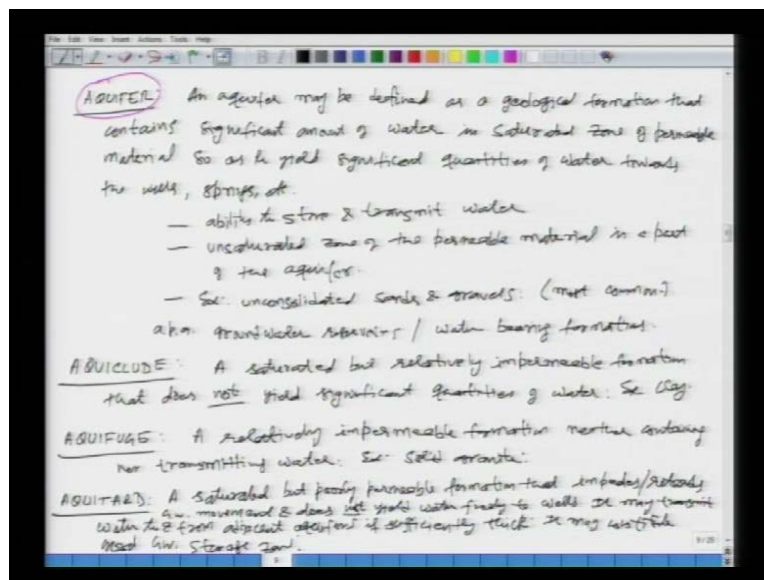 File Edit View Insert Actions Tools Help
AQUIFER: An aquifer may be defined as a geological formation that
contains significant amount of water in saturated zone of permeable
material so as to yield significant quantities of water towards
the wells, springs, etc.
— ability to store & transmit water
— unsaturated zone of the permeable material is a part
of the aquifer.
— Ex: unconsolidated sands & gravels. (most common)
a.k.a. groundwater reservoirs / water bearing formations.
AQUICLUDE: A saturated but relatively impermeable formation
that does not yield significant quantities of water: Ex clay.
AQUIFUGE: A relatively impermeable formation neither containing
nor transmitting water: Ex: Solid granite.
AQUITARD: A saturated but poorly permeable formation that impedes/retards
G.W. movement & does not yield water freely to wells. It may transmit
water to & from adjacent aquifers if sufficiently thick It may constitute
G.W. storage zone.
9/20